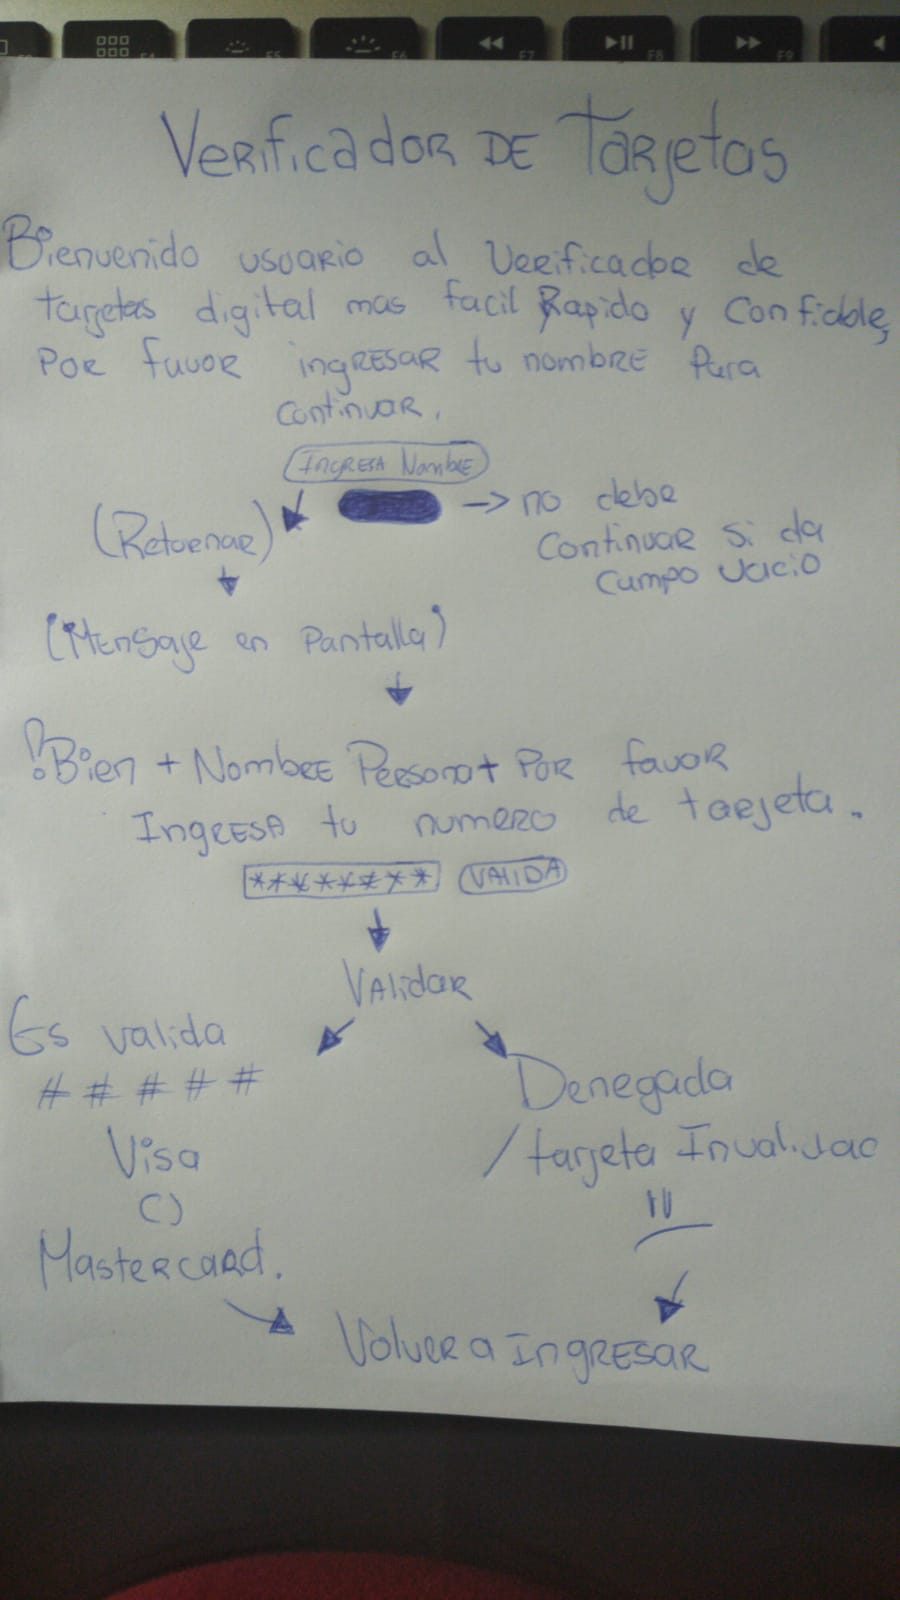 F4 F5 F6 F7 F8 F9
Verificador DE Tarjetas
Bienvenido usuario al Verificador de
tarjetas digital mas facil Rapido y Confiable,
Por favor ingresar tu nombre Para
Continuar.
Ingresa Nombre
(Retornar) → no debe
Continuar si da
Campo vacio
(Mensaje en Pantalla)
!Bien + Nombre Persona + Por favor
Ingresa tu numero de tarjeta.
******** VALIDA
Validar
Es valida
# # # # #
Denegada
Visa
/tarjeta
Mastercard.
Volver a Ingresar